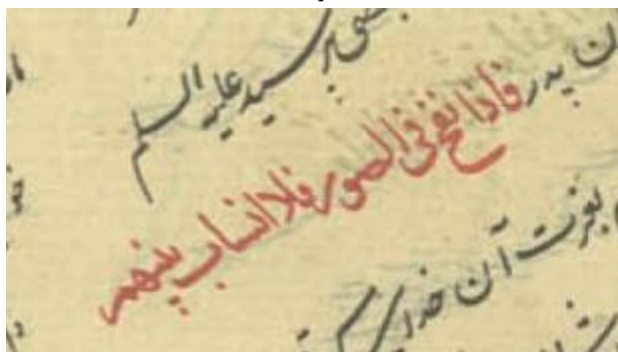 پرسید علیه السلم
ن پدر فاذا نفخ فی الصور فلا انساب بینهم
بعزت آن خدای